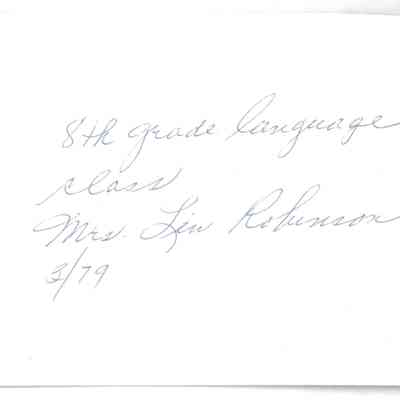 8th grade language
class
Mrs. Lin Robinson
3/79